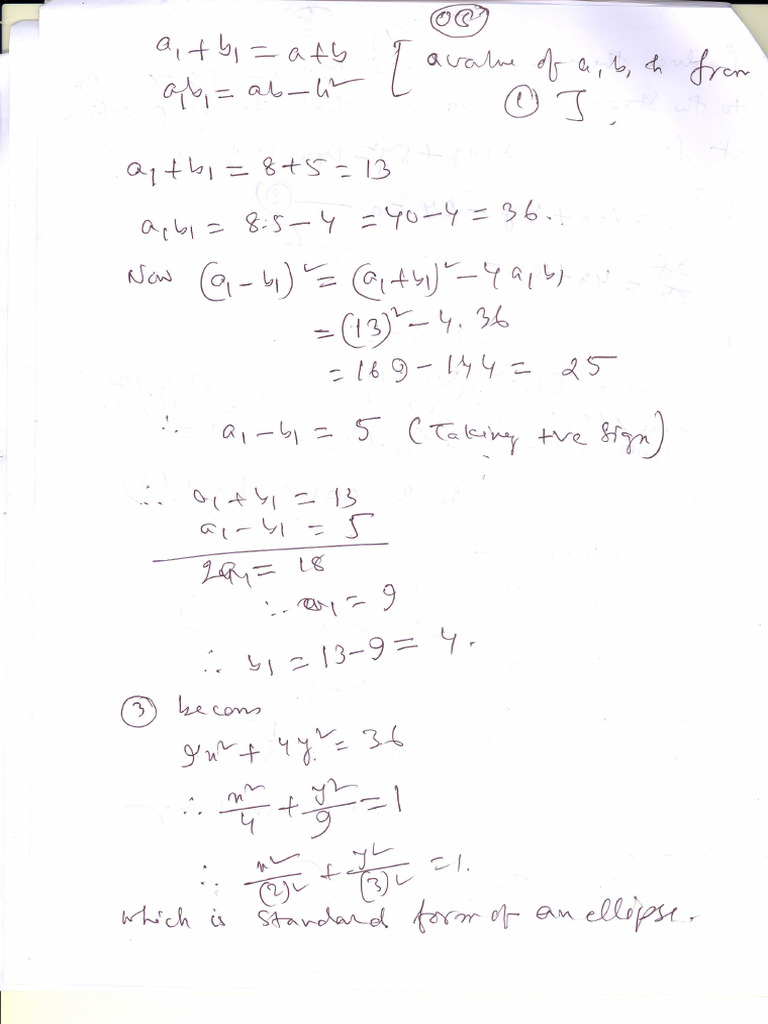 a₁ + b₁ = a + b [ a value of a, b, h from
a₁b₁ = ab − h² ① ].
a₁ + b₁ = 8 + 5 = 13
a₁b₁ = 8.5 − 4 = 40 − 4 = 36.
Now (a₁ − b₁)² = (a₁ + b₁)² − 4 a₁b₁
= (13)² − 4. 36
= 169 − 144 = 25
∴ a₁ − b₁ = 5 (Taking +ve sign)
∴ a₁ + b₁ = 13
a₁ − b₁ = 5
2a₁ = 18
∴ a₁ = 9
∴ b₁ = 13 − 9 = 4.
③ becoms
9x² + 4y² = 36
∴ x²/4 + y²/9 = 1
∴ x²/(2)² + y²/(3)² = 1.
which is standard form of an ellipse.